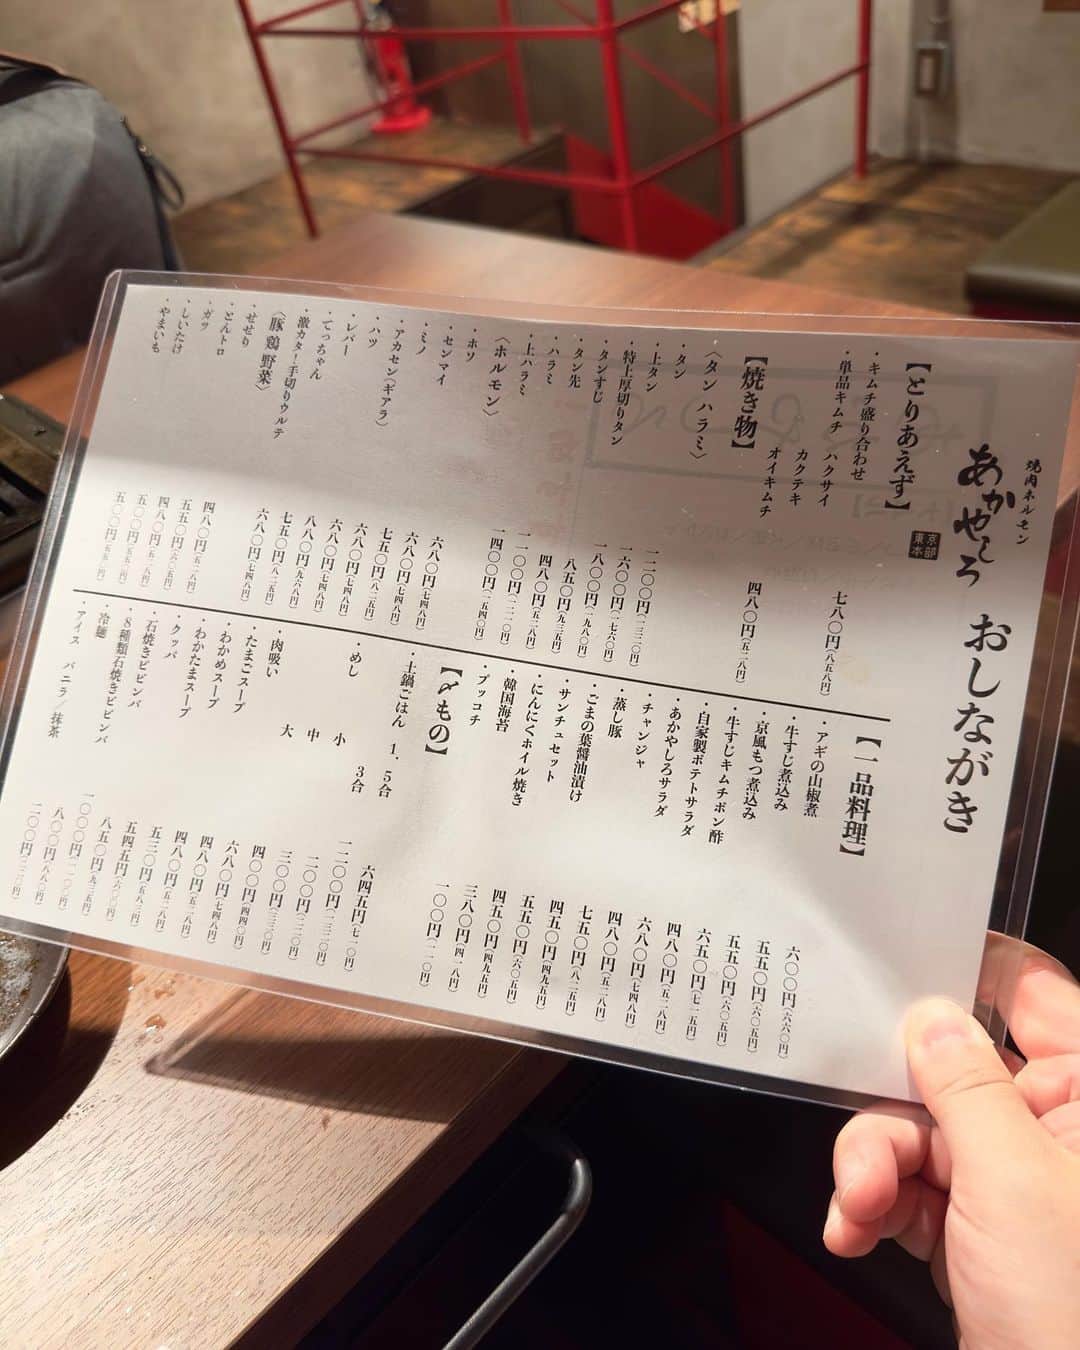 焼肉ホルモン
あかやしろ
東京本部
おしながき
【とりあえず】
・キムチ盛り合わせ 七八〇円(八五八円)
・単品キムチ ハクサイ 四八〇円(五二八円)
カクテキ
オイキムチ
【焼き物】
〈タン ハラミ〉
・タン 一二〇〇円(一三二〇円)
・上タン 一六〇〇円(一七六〇円)
・特上厚切りタン 一八〇〇円(一九八〇円)
・タンすじ 八五〇円(九三五円)
・タン先 四八〇円(五二八円)
・ハラミ 一一〇〇円(一二一〇円)
・上ハラミ 一四〇〇円(一五四〇円)
〈ホルモン〉
・ホソ 六八〇円(七四八円)
・センマイ 六八〇円(七四八円)
・ミノ 七五〇円(八二五円)
・アカセン(ギアラ) 六八〇円(七四八円)
・ハツ 六八〇円(七四八円)
・レバー 八八〇円(九六八円)
・てっちゃん 七五〇円(八二五円)
・激カタ!手切りウルテ 六八〇円(七四八円)
〈豚 鶏 野菜〉
・せせり 四八〇円(五二八円)
・とんトロ 五五〇円(六〇五円)
・ガツ 四八〇円(五二八円)
・しいたけ 五〇〇円(五五〇円)
・やまいも 五〇〇円(五五〇円)
【一品料理】
・アギの山椒煮 六〇〇円(六六〇円)
・牛すじ煮込み 五五〇円(六〇五円)
・京風もつ煮込み 五五〇円(六〇五円)
・牛すじキムチポン酢 六五〇円(七一五円)
・自家製ポテトサラダ 四八〇円(五二八円)
・あかやしろサラダ 六八〇円(七四八円)
・チャンジャ 四八〇円(五二八円)
・蒸し豚 七五〇円(八二五円)
・ごまの葉醤油漬け 四五〇円(四九五円)
・サンチュセット 五五〇円(六〇五円)
・にんにくホイル焼き 四五〇円(四九五円)
・韓国海苔 三八〇円(四一八円)
・プッコチ 一〇〇円(一一〇円)
【〆もの】
・土鍋ごはん 1.5合 六四五円(七一〇円)
3合 一二〇〇円(一三二〇円)
・めし 小 二〇〇円(二二〇円)
中 三〇〇円(三三〇円)
大 四〇〇円(四四〇円)
・肉吸い 六八〇円(七四八円)
・たまごスープ 四八〇円(五二八円)
・わかめスープ 四八〇円(五二八円)
・わかたまスープ 五三〇円(五八三円)
・クッパ 五四五円(六〇〇円)
・石焼きビビンバ 八五〇円(九三五円)
・8種類石焼きビビンバ 一〇〇〇円(一一〇〇円)
・冷麺 八〇〇円(八八〇円)
・アイス バニラ/抹茶 二〇〇円(二二〇円)